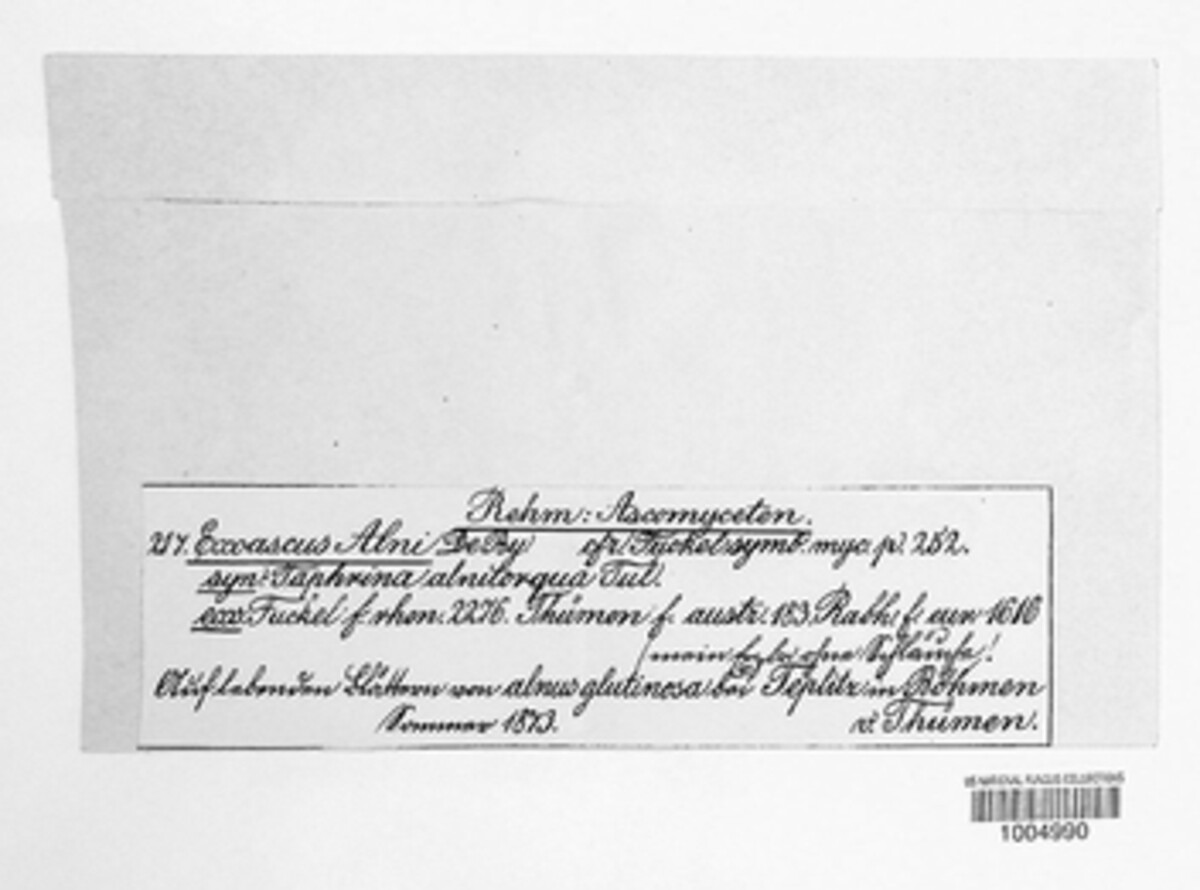 Rehm: Ascomyceten.
217. Exoascus Alni De By cfr. Fuckel symb. myc. p. 252.
syn: Taphrina alnitorqua Tul.
exs: Fuckel f. rhen. 2276. Thümen f. austr. 183. Rabh. f. eur 1616
(mein ohne Schläuche!
Auf lebenden Blättern von alnus glutinosa bei Teplitz in Böhmen
Sommer 1873. v. Thümen.
US NATIONAL FUNGUS COLLECTIONS
1004990